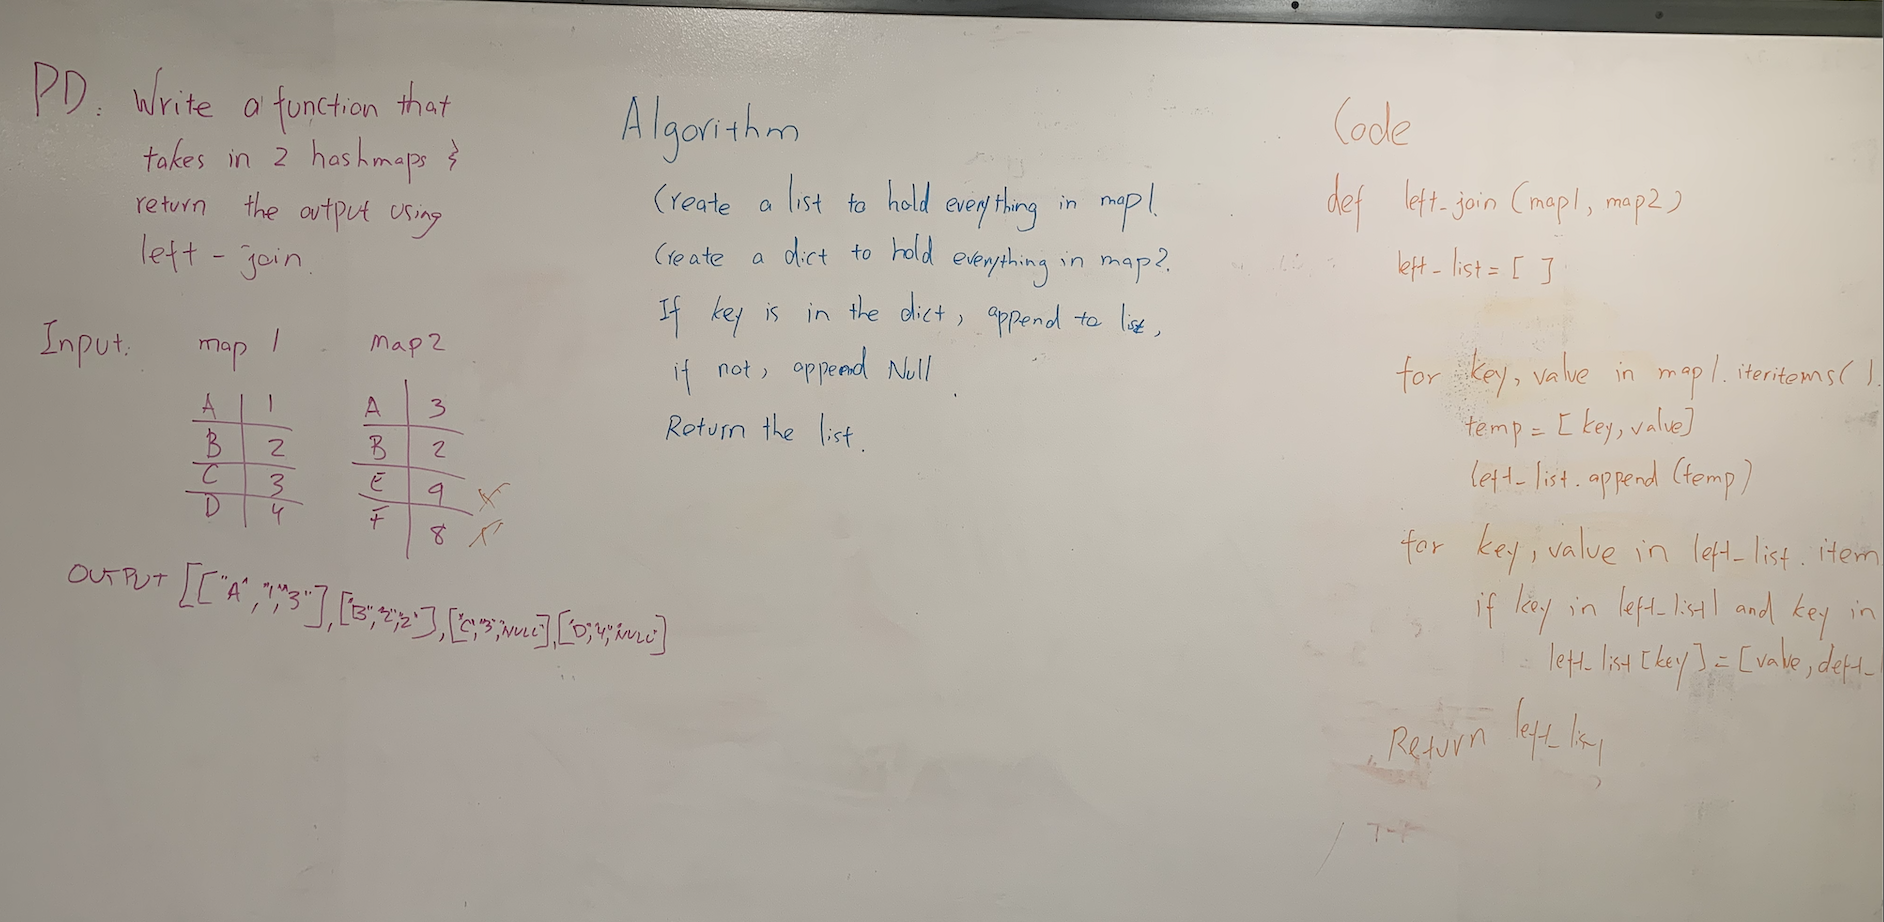 PD: Write a function that
takes in 2 hashmaps &
return the output using
left-join.
Input: map 1 map2
A 1 A 3
B 2 B 2
C 3 E 9 X
D 4 F 8 X
OUTPUT [["A","1","3"],["B","2","2"],["C","3","NULL"],["D","4","NULL"]
Algorithm
Create a list to hold everything in map1.
Create a dict to hold everything in map2.
If key is in the dict, append to list,
if not, append Null
Return the list.
Code
def left_join (map1, map2)
left_list = [ ]
for key, value in map1.iteritems( ).
temp = [key, value]
left_list.append (temp)
for key, value in left_list.item
if key in left_list1 and key in
left_list [key] = [value, deft_
Return left_list